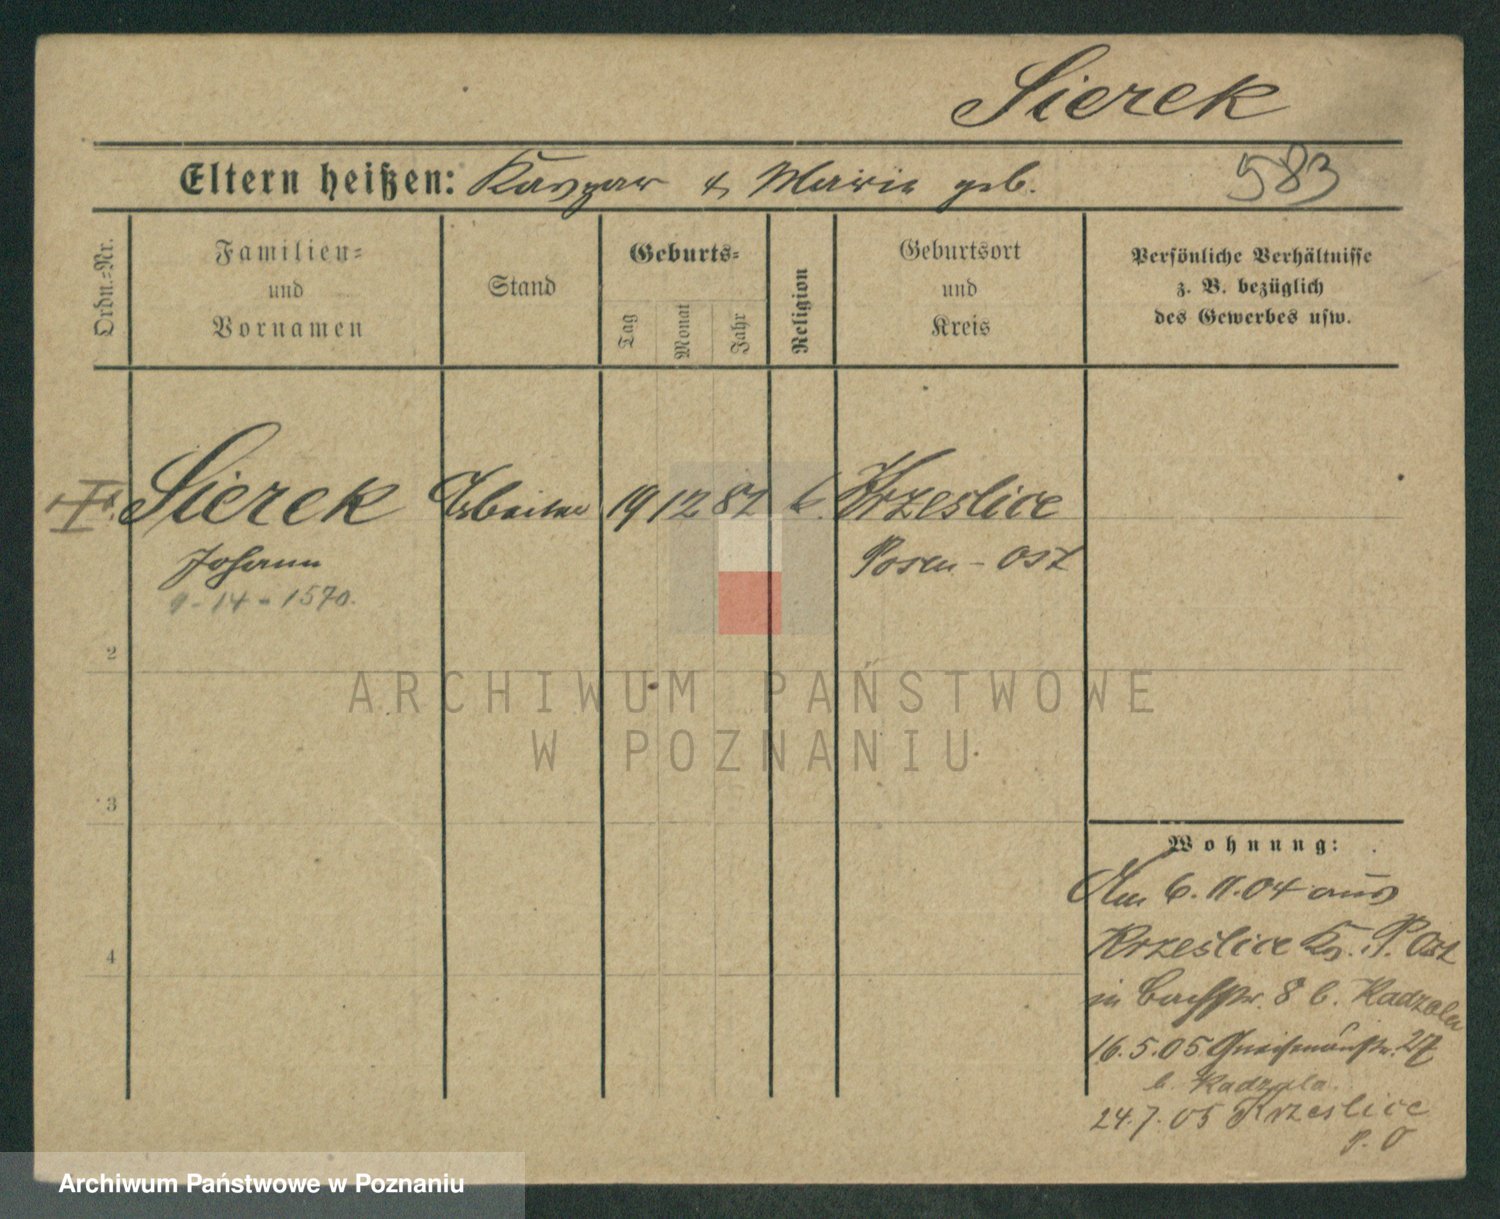 Sierek
Eltern heißen: Kaspar & Marie geb.
583
Ordn.=Nr.
Familien=
und
Vornamen
Stand
Geburts=
Tag
Monat
Jahr
Religion
Geburtsort
und
Kreis
Persönliche Verhältnisse
z. B. bezüglich
des Gewerbes usw.
Sierek Arbeiter 19 12 82 k. Krzeslice
Johann Posen - Ost
9-14-1570.
2
3
4
ARCHIWUM PAŃSTWOWE
W POZNANIU
Wohnung:
Am 6.11.04 aus
Krzeslice Kr. P. Ost
in Bachstr. 8 b. Kadzala
16.5.05 Gneisenaustr. 27
b. Kadzala.
24.7.05 Krzeslice
P. O
Archiwum Państwowe w Poznaniu